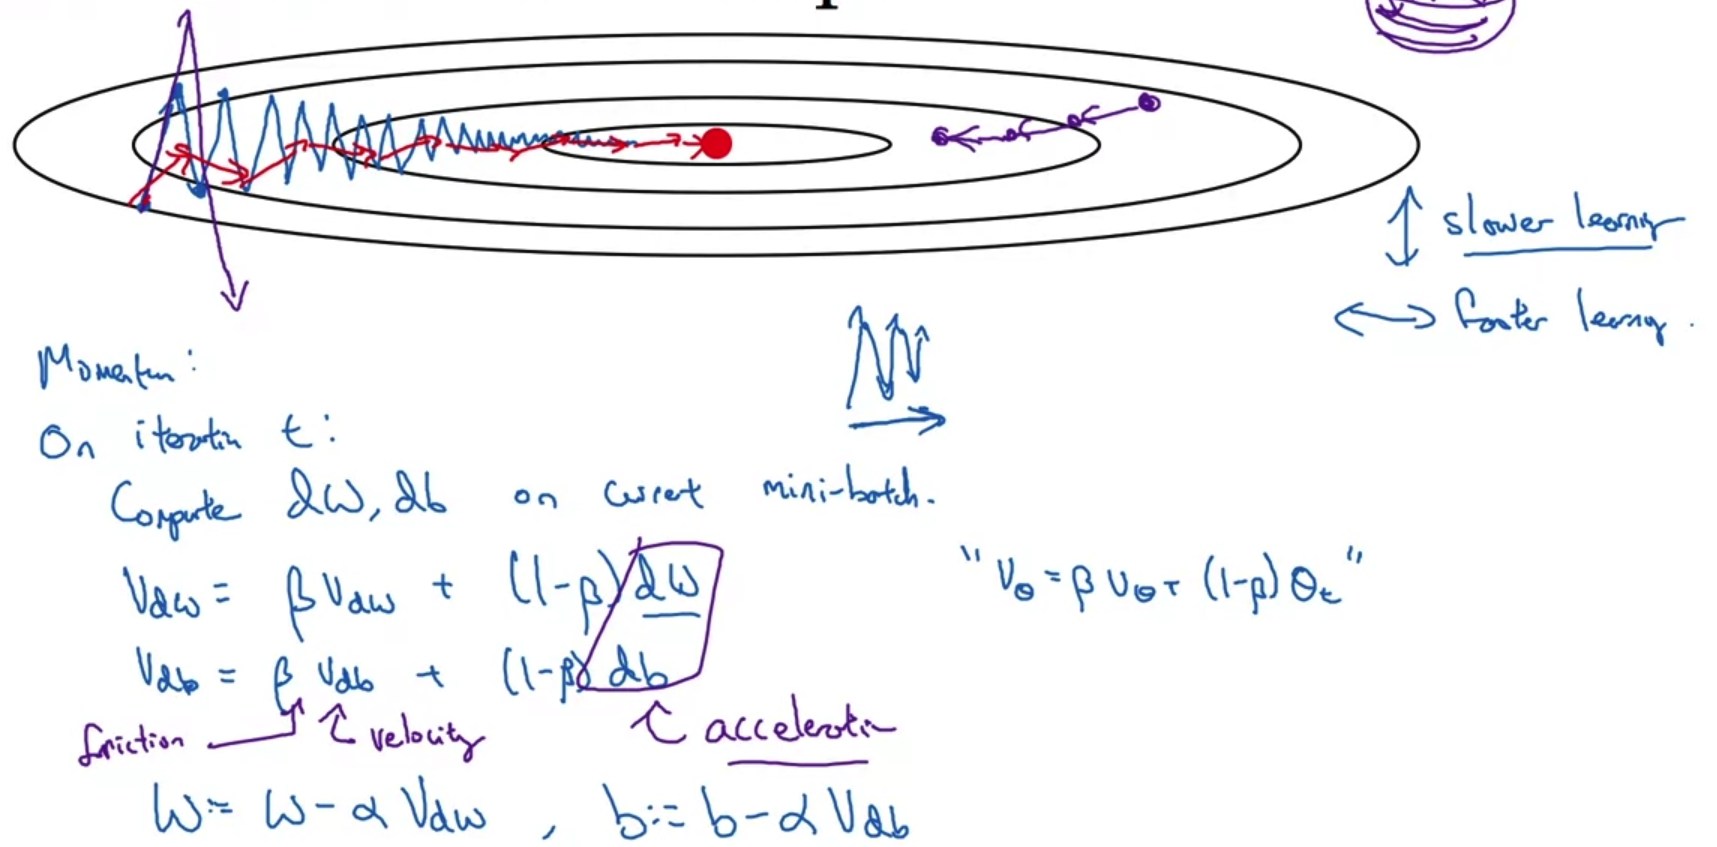 slower learning
faster learning.
Momentum:
On iteration t:
Compute dW, db on current mini-batch.
V_dw = β V_dw + (1-β) dW
"V_θ = β V_θ + (1-β) θ_t"
V_db = β V_db + (1-β) db
friction velocity acceleration
W := W - α V_dw , b := b - α V_db